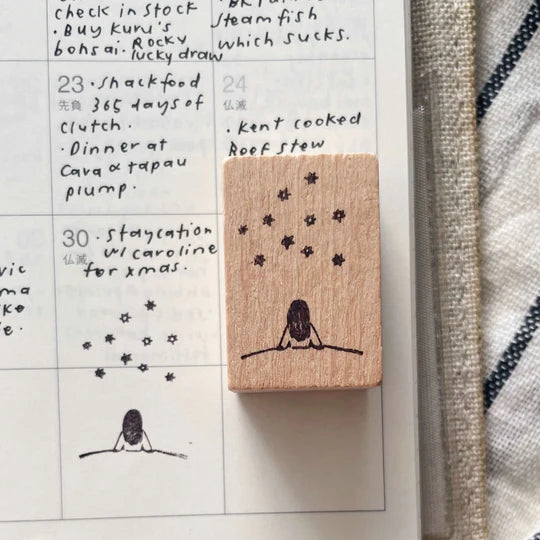 check in stock
· Buy Kuru's
bonsai. Rocky
lucky draw
steam fish
which sucks.
23 · Shackfood
先負 365 days of
clutch.
· Dinner at
Cava & tapau
plump.
24
仏滅
· Kent cooked
Beef stew
30 · staycation
仏滅 w/ caroline
for xmas.
vic
ma
ke
e.